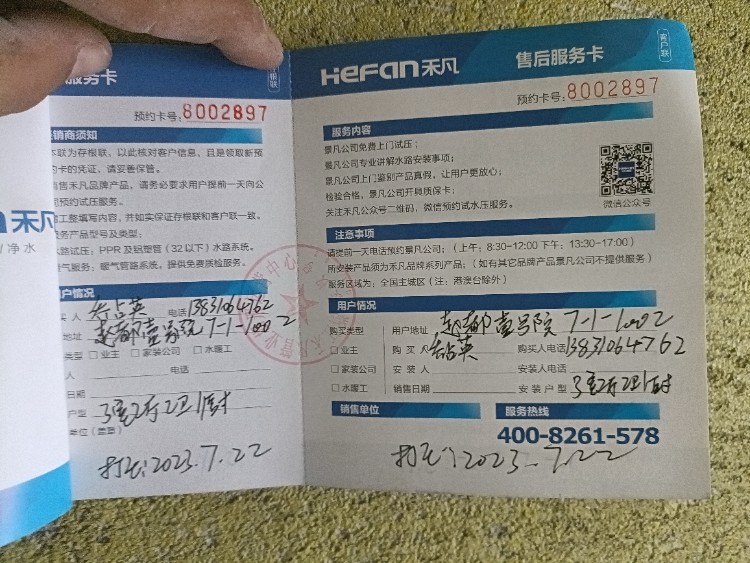 服务卡
预约卡号:8002897
销商须知
本联为存根联，以此核对客户信息，且是领取新预
约卡的凭证，请妥善保管。
销售禾凡品牌产品，请务必要求用户提前一天向公
司预约试压服务。
工整填写内容，并如实保证存根联和客户联一致。
服务产品型号及类型：
水路试压：PPR 及铝塑管（32以下）水路系统。
暖气服务：暖气管路系统，提供免费质检服务。
用户情况
电话 13831064762
地址 赵都壹号院 7-1-1002
类型 □ 业主 □ 家装公司 □ 水暖工
电话
日期
户型 3室2厅2卫1厨
单位（盖章）
打压：2023.7.22
禾凡
净水
HeFan禾凡
售后服务卡
客户联
预约卡号:8002897
服务内容
景凡公司免费上门试压；
景凡公司专业讲解水路安装事项；
景凡公司上门鉴别产品真假，让用户更放心；
检验合格，景凡公司开具质保卡；
关注禾凡公众号二维码，微信预约试水压服务。
微信公众号
注意事项
请提前一天电话预约景凡公司；（上午：8:30-12:00 下午：13:30-17:00）
所安装产品须为禾凡品牌系列产品；（如有其它品牌产品景凡公司不提供服务）
服务区域为：全国主城区（注：港澳台除外）
用户情况
购买类型 用户地址 赵都壹号院 7-1-1002
□ 业主 购买人 购买人电话 13831064762
□ 家装公司 安装人 安装人电话
□ 水暖工 销售日期 安装户型 3室2厅2卫1厨
销售单位
服务热线
400-8261-578
打压：2023.7.22